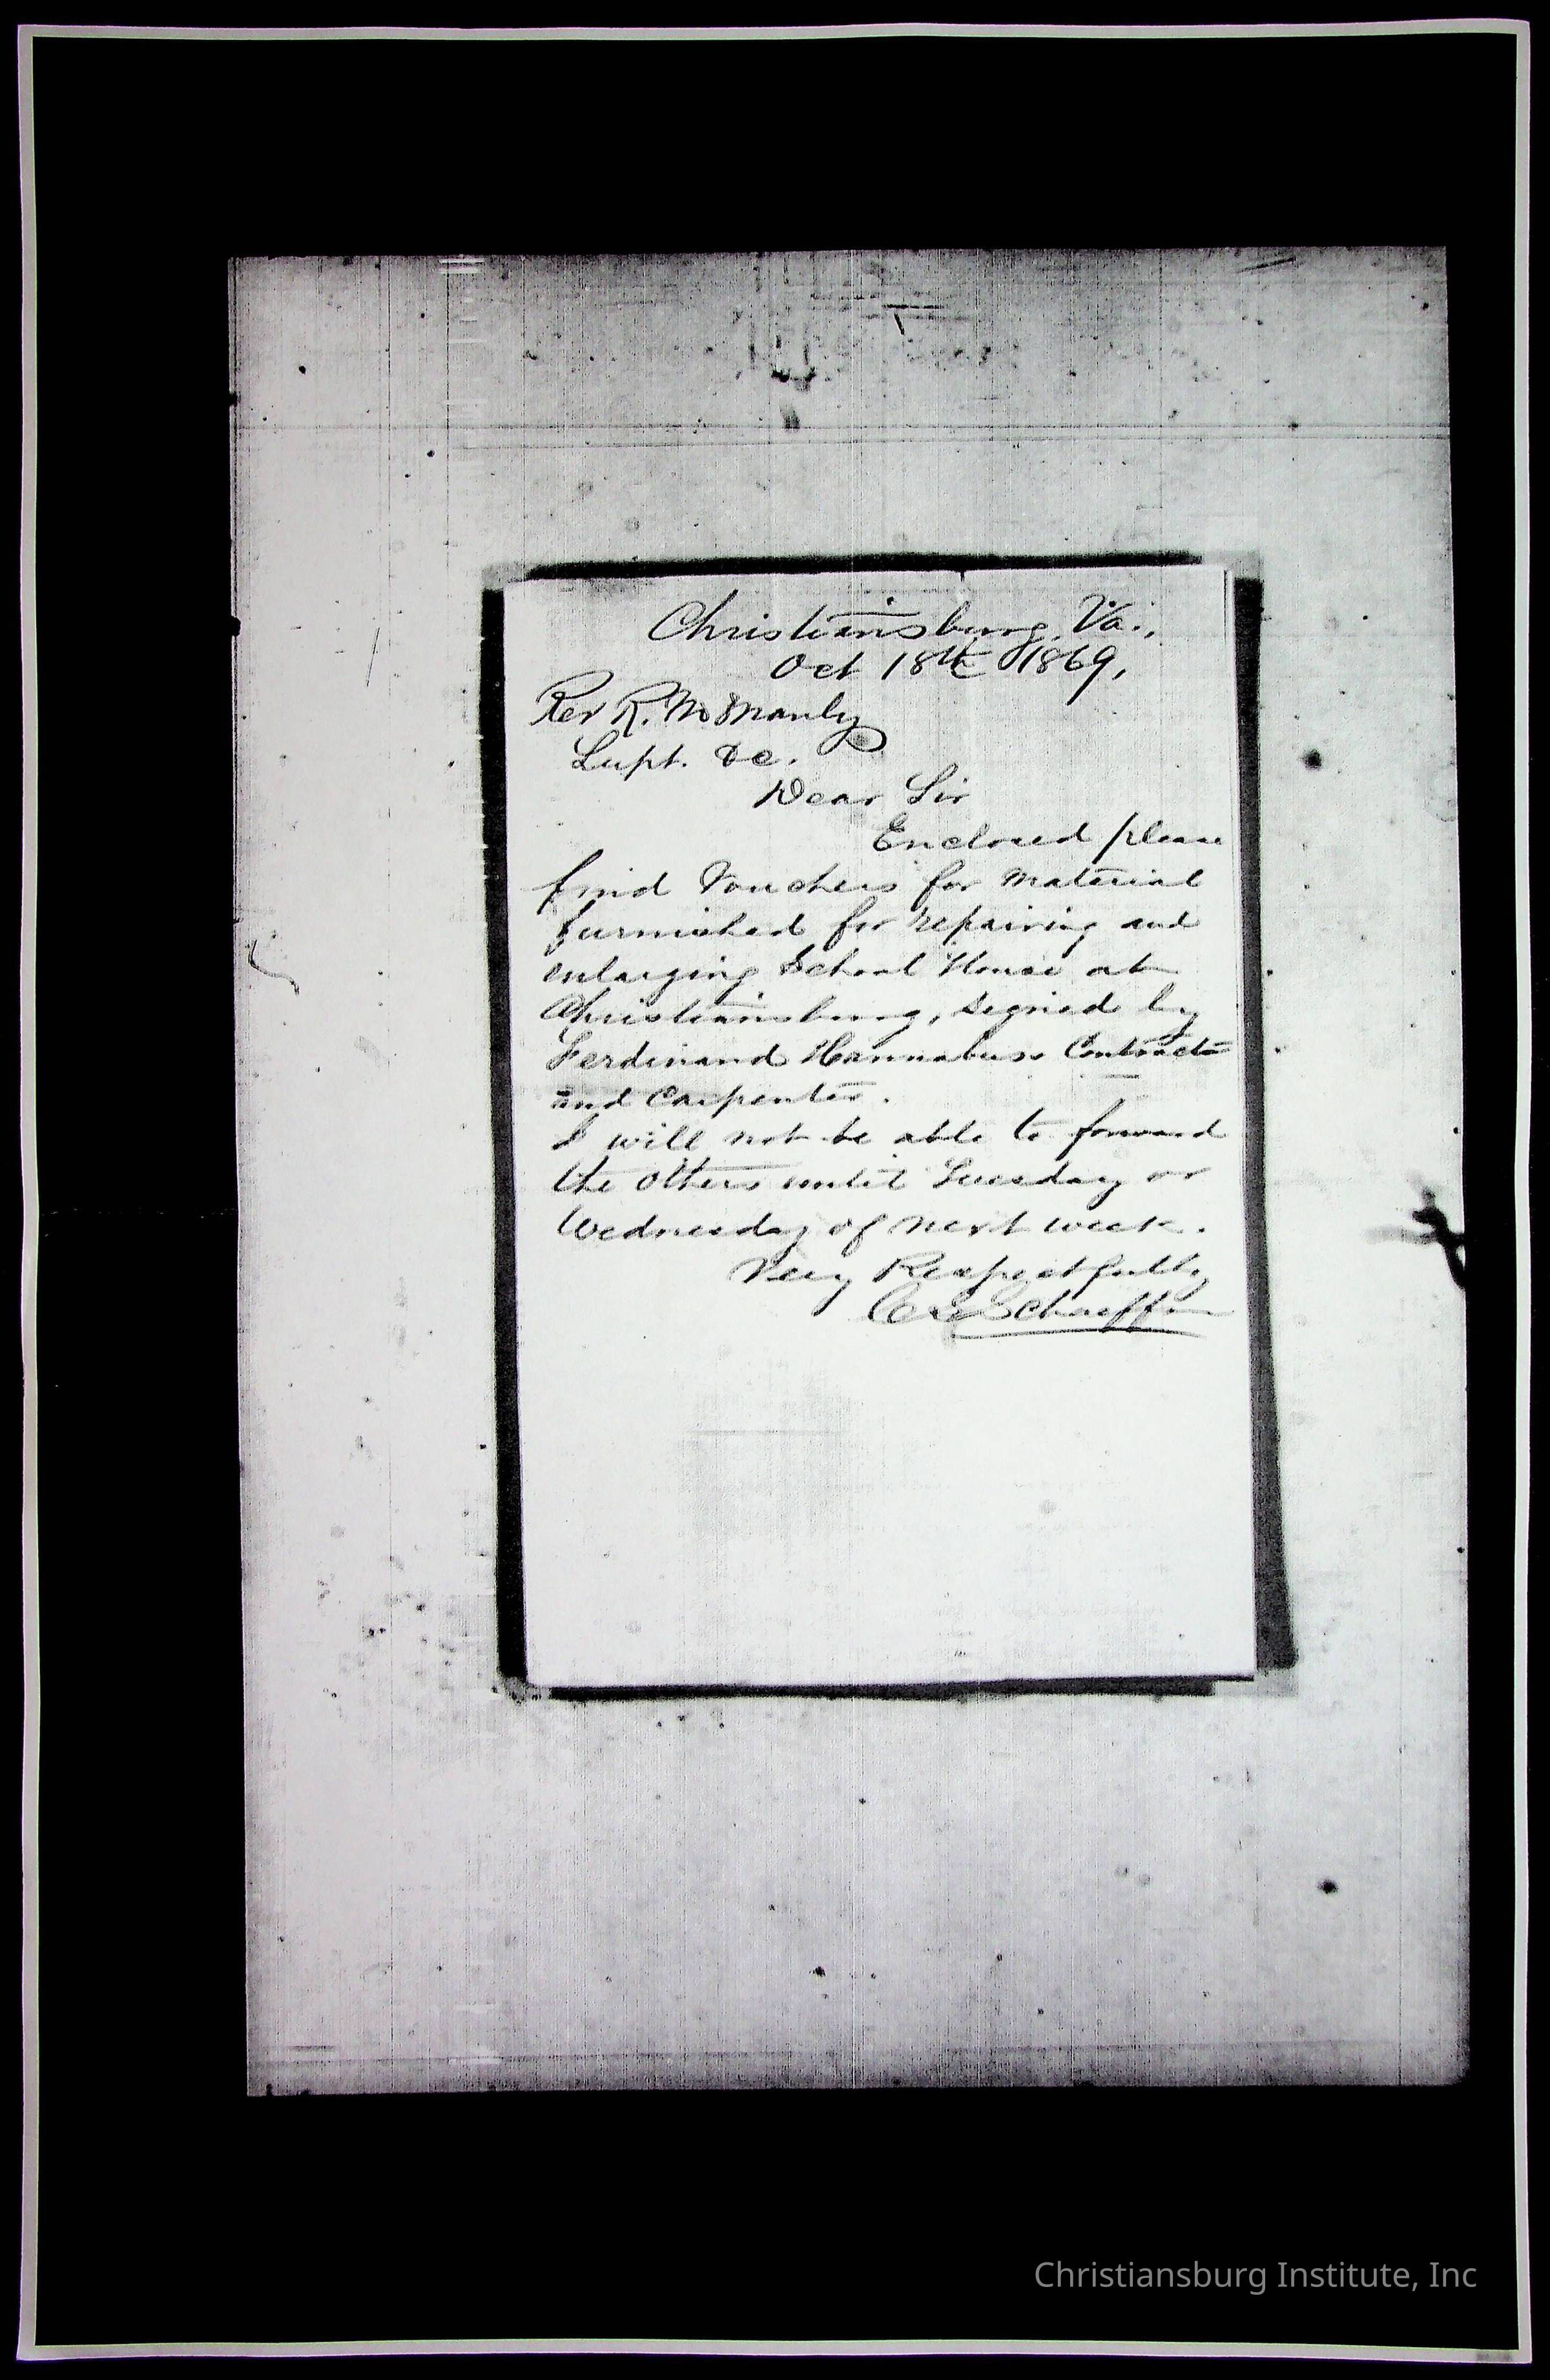 Christiansburg, Va.,
Oct 18th 1869,
Rev R. M Manly
Supt. &c.
Dear Sir
Enclosed please
find Vouchers for Material
furnished for repairing and
enlarging School House at
Christiansburg, signed by
Ferdinand Hannabuss Contractor
and Carpenter.
I will not be able to forward
the others until Tuesday or
Wednesday of next week.
Very Respectfully
Schaeffer
Christiansburg Institute, Inc